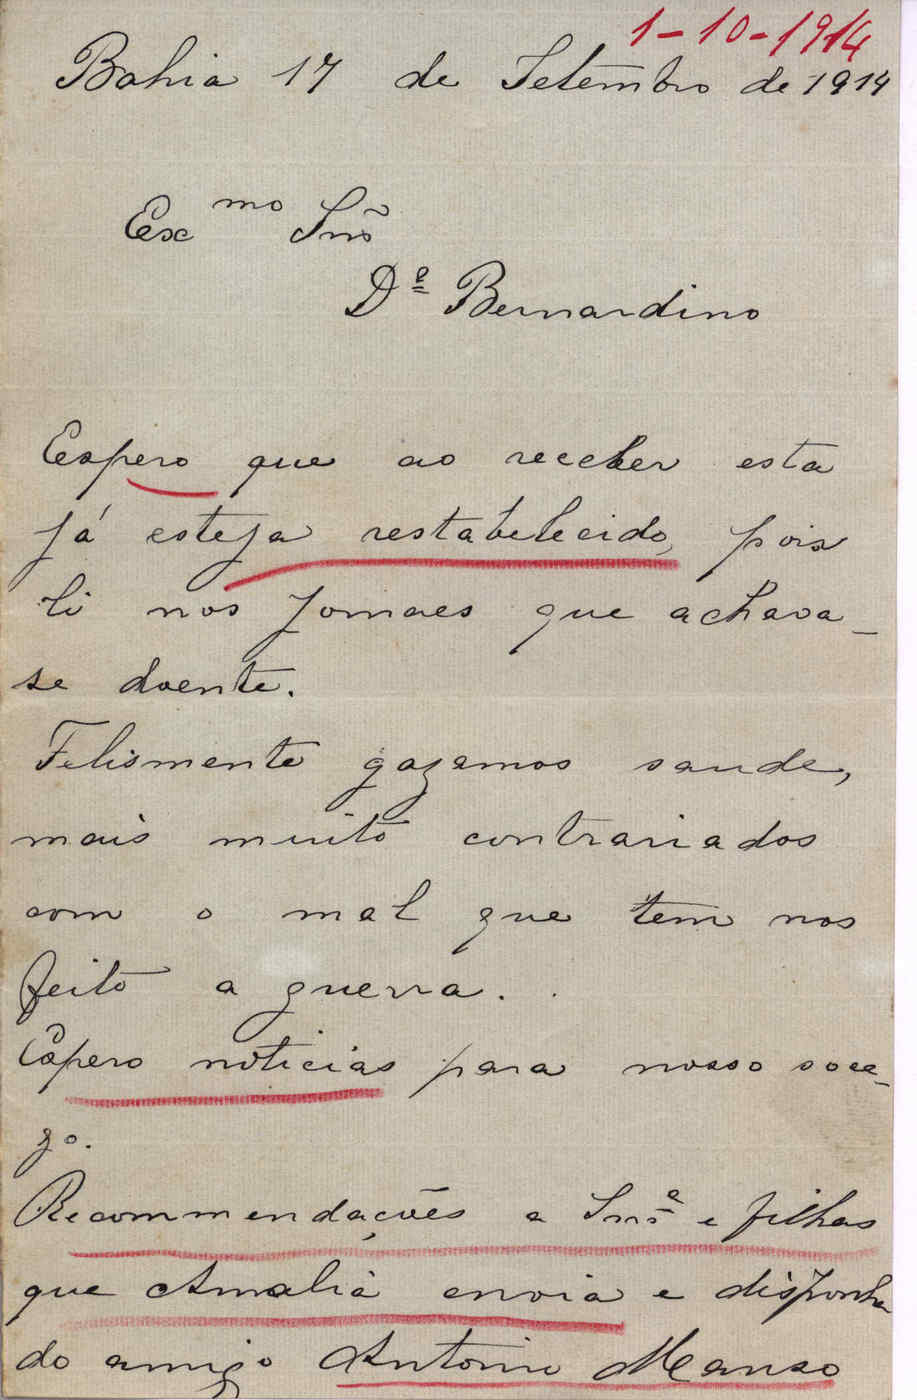 1-10-1914
Bahia 17 de Setembro de 1914
Ex mo Snr
Dr Bernardino
Espero que ao receber esta
já esteja restabelecido, pois
li nos jornaes que achava-
se doente.
Felismente gozamos saude,
mais muito contrariados
com o mal que tem nos
feito a guerra.
Espero noticias para nosso soce-
go.
Recommendações a Snrª e filhas
que Amalia envia e disponha
do amigo Antonio Manso